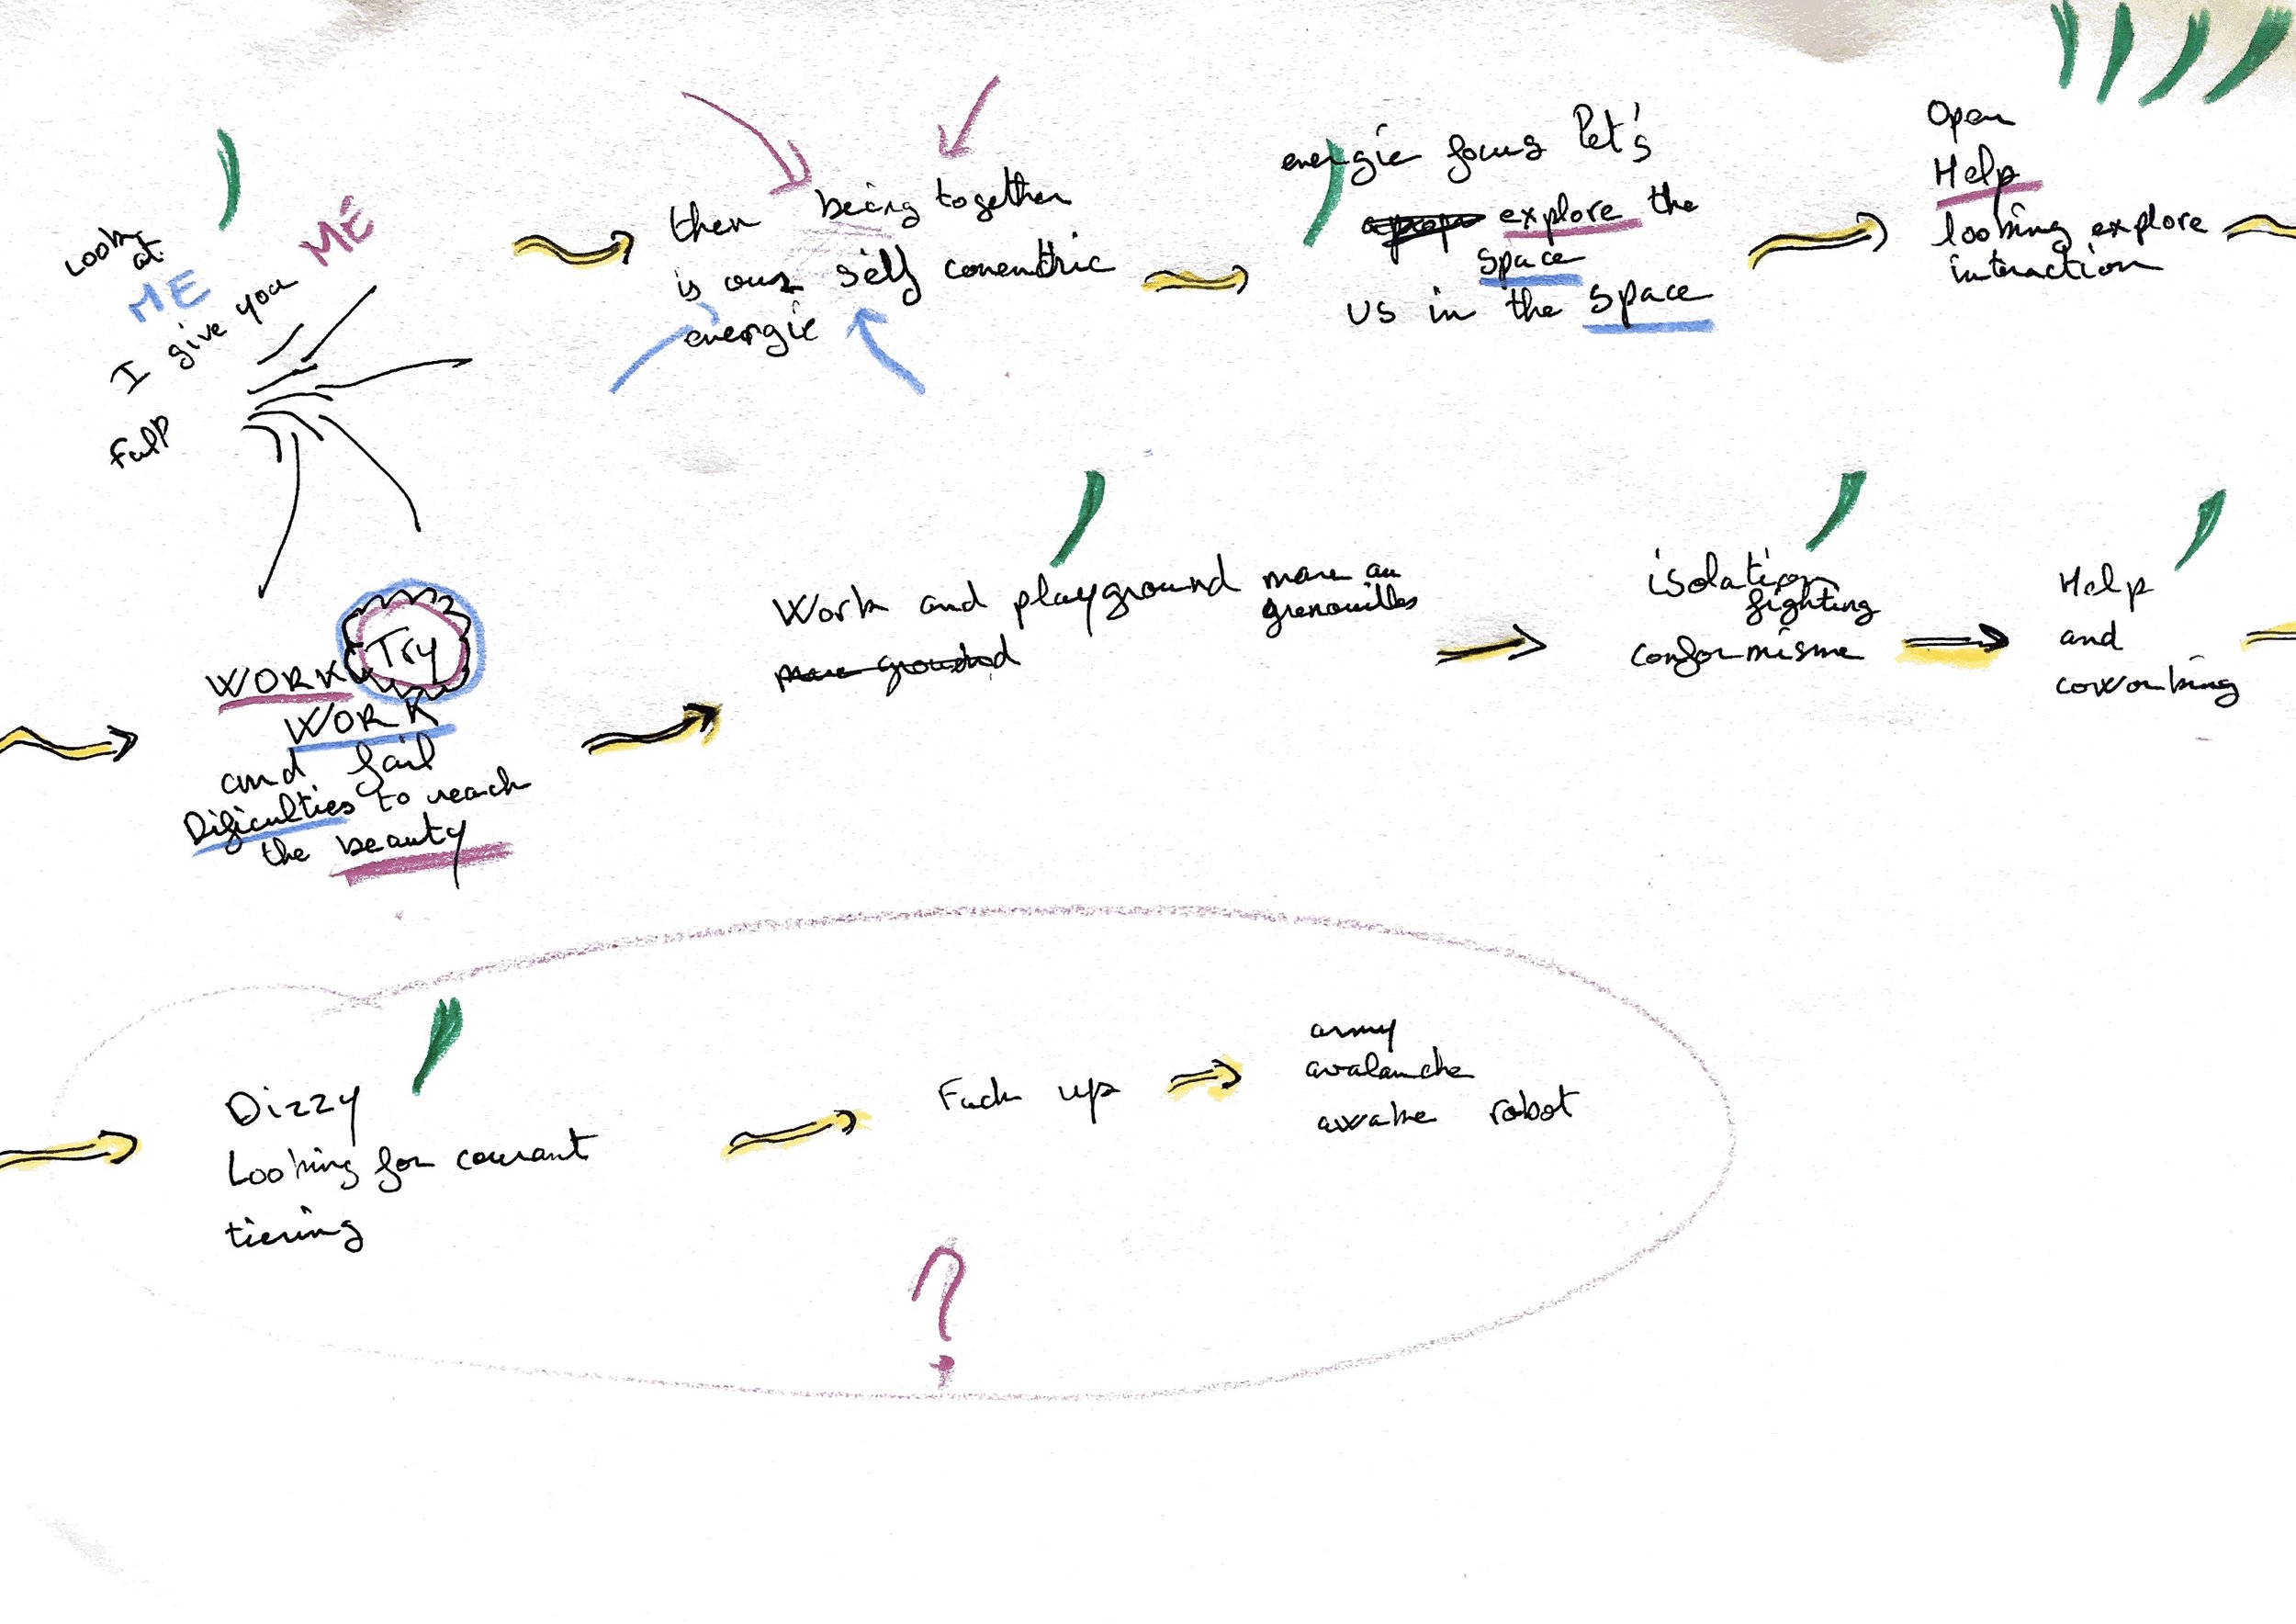 Look
at
ME
I give you MÉ
Full
then being together
is our self conentric
energie
energie focus let's
explore the
space
us in the space
Open
Help
looking explore
interaction
Try
WORK
WORK
and fail
Dificulties to reach
the beauty
Work and playground mare au
grenouilles
more grounded
isolation
fighting
conformisme
Help
and
coworking
Dizzy
Looking for courant
tiering
Fuck up
army
avalanche
awake robot
?